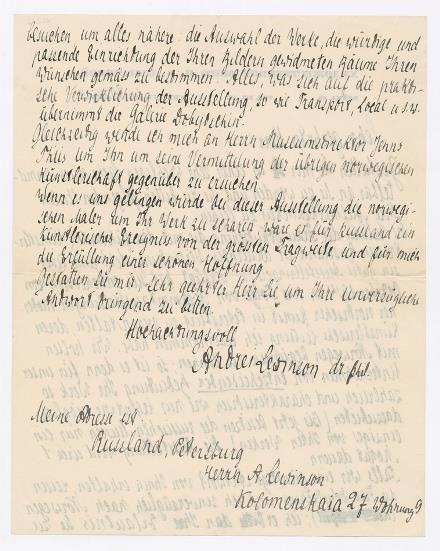 besuchen um alles nähere die Auswahl der Werke, die würdige und
passende Einrichtung der Ihren Bildern gewidmeten Räume Ihren
Wünschen gemäss zu bestimmen. Alles, was sich auf die prakti-
sche Verwirklichung der Ausstellung, so wie Transport, Local u.s.w.
übernimmt die Galerie Dobytschin.
Gleichzeitig wende ich mich an Herrn Museumsdirektor Jenns
Thiis um Ihn um seine Vermittelung der übrigen norwegischen
Künstlerschaft gegenüber zu ersuchen.
Wenn es uns gelingen würde bei dieser Ausstellung die norwegi-
schen Maler um Ihr Werk zu scharen, wäre es für Russland ein
künstlerisches Ereignis von der grössten Tragweite und für mich
die Erfüllung einer schönen Hoffnung.
Gestatten Sie mir, sehr geehrter Herr Sie um Ihre unverzügliche
Antwort dringend zu bitten.
Hochachtungsvoll
Andrei Lewinson dr. phil.
Meine Adresse ist
Russland Petersburg
Herrn A. Lewinson
Kolomenskaia 27 Wohnung 9